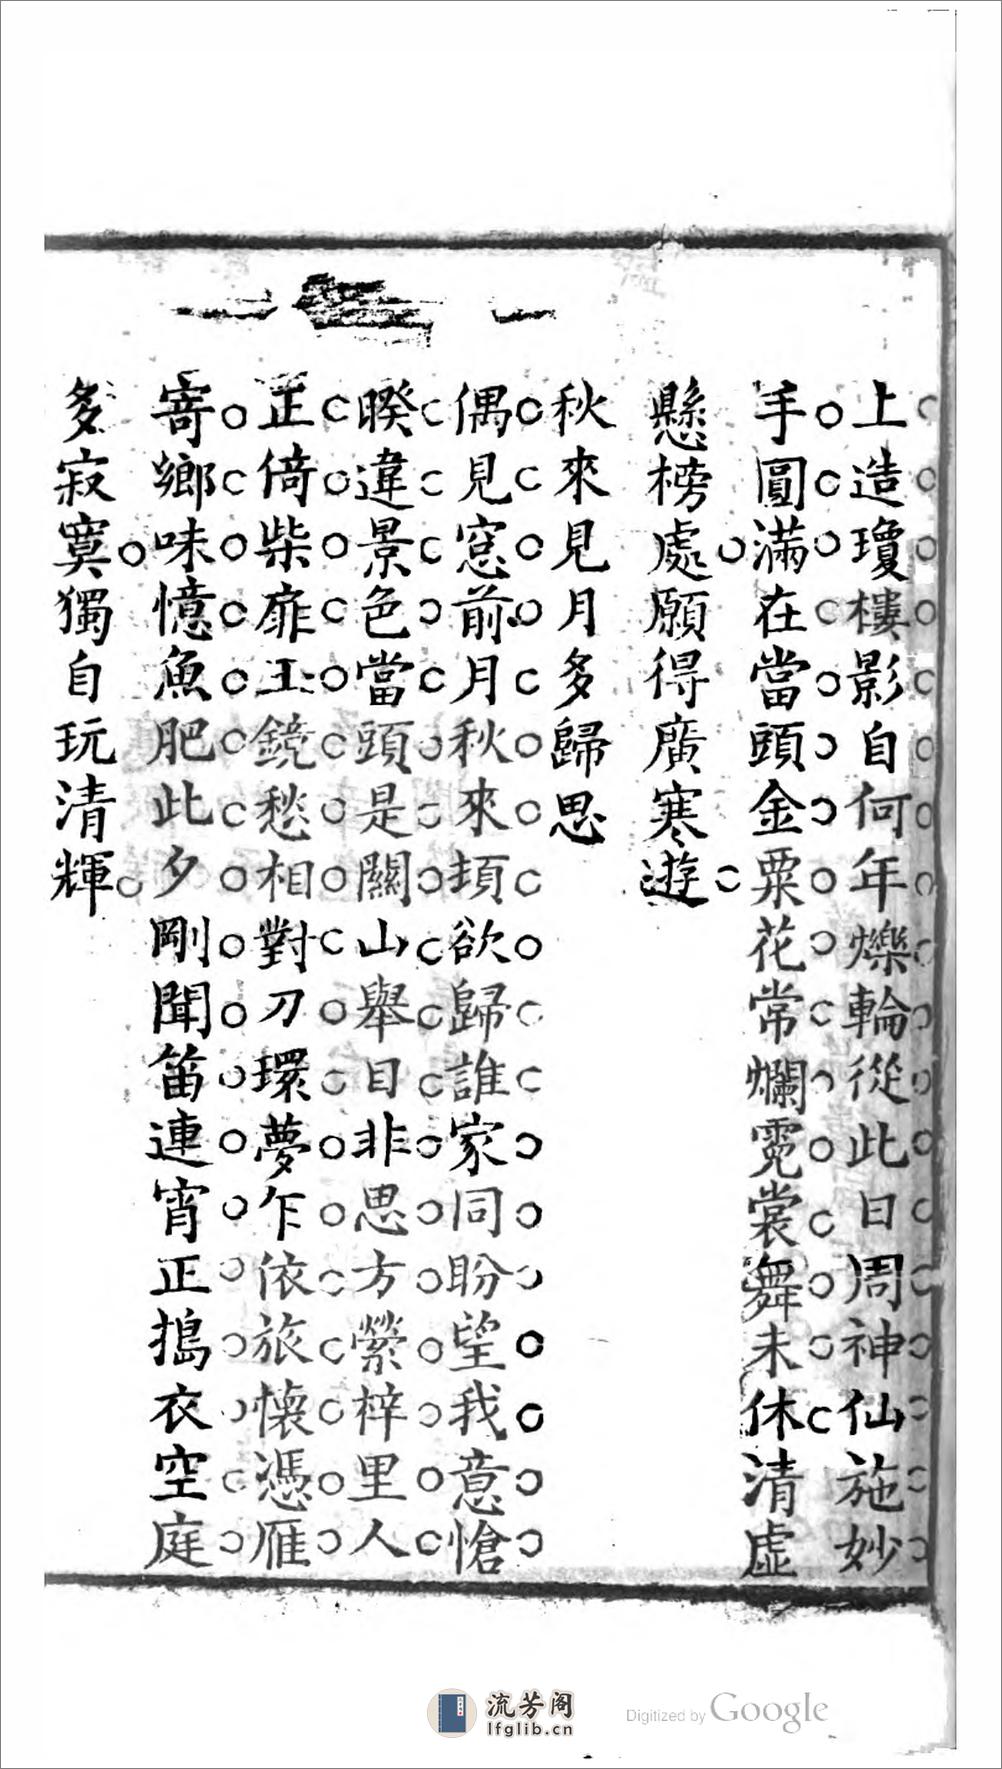 上造瓊樓影自何年爍輪從此日周神仙施妙
手圓滿在當頭金粟花常爛霓裳舞未休清虛
懸榜處願得廣寒遊
秋來見月多歸思
偶見窓前月秋來頓欲歸誰家同盼望我意愴
暌違景色當頭是關山舉目非思方縈梓里人
正倚柴扉玉鏡愁相對刀環夢乍依旅懷憑雁
寄鄉味憶魚肥此夕剛聞笛連宵正搗衣空庭
多寂寞獨自玩清輝
流芳阁
lfglib.cn
Digitized by Google